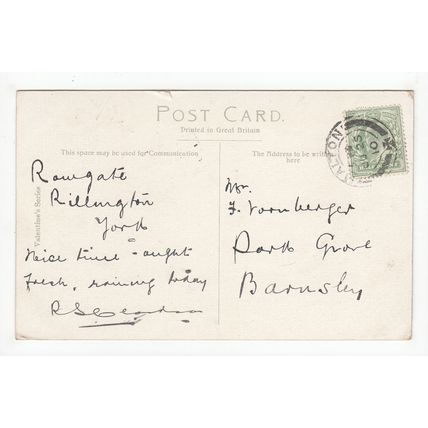 POST CARD.
Printed in Great Britain
This space may be used for Communication
The Address to be written
here
Valentine's Series
Rowgate
Rillington
York
Nice time - aught
fresh, raining today
Mr.
F. Vornberger
Park Grove
Barnsley
ALTON
SP 25
10